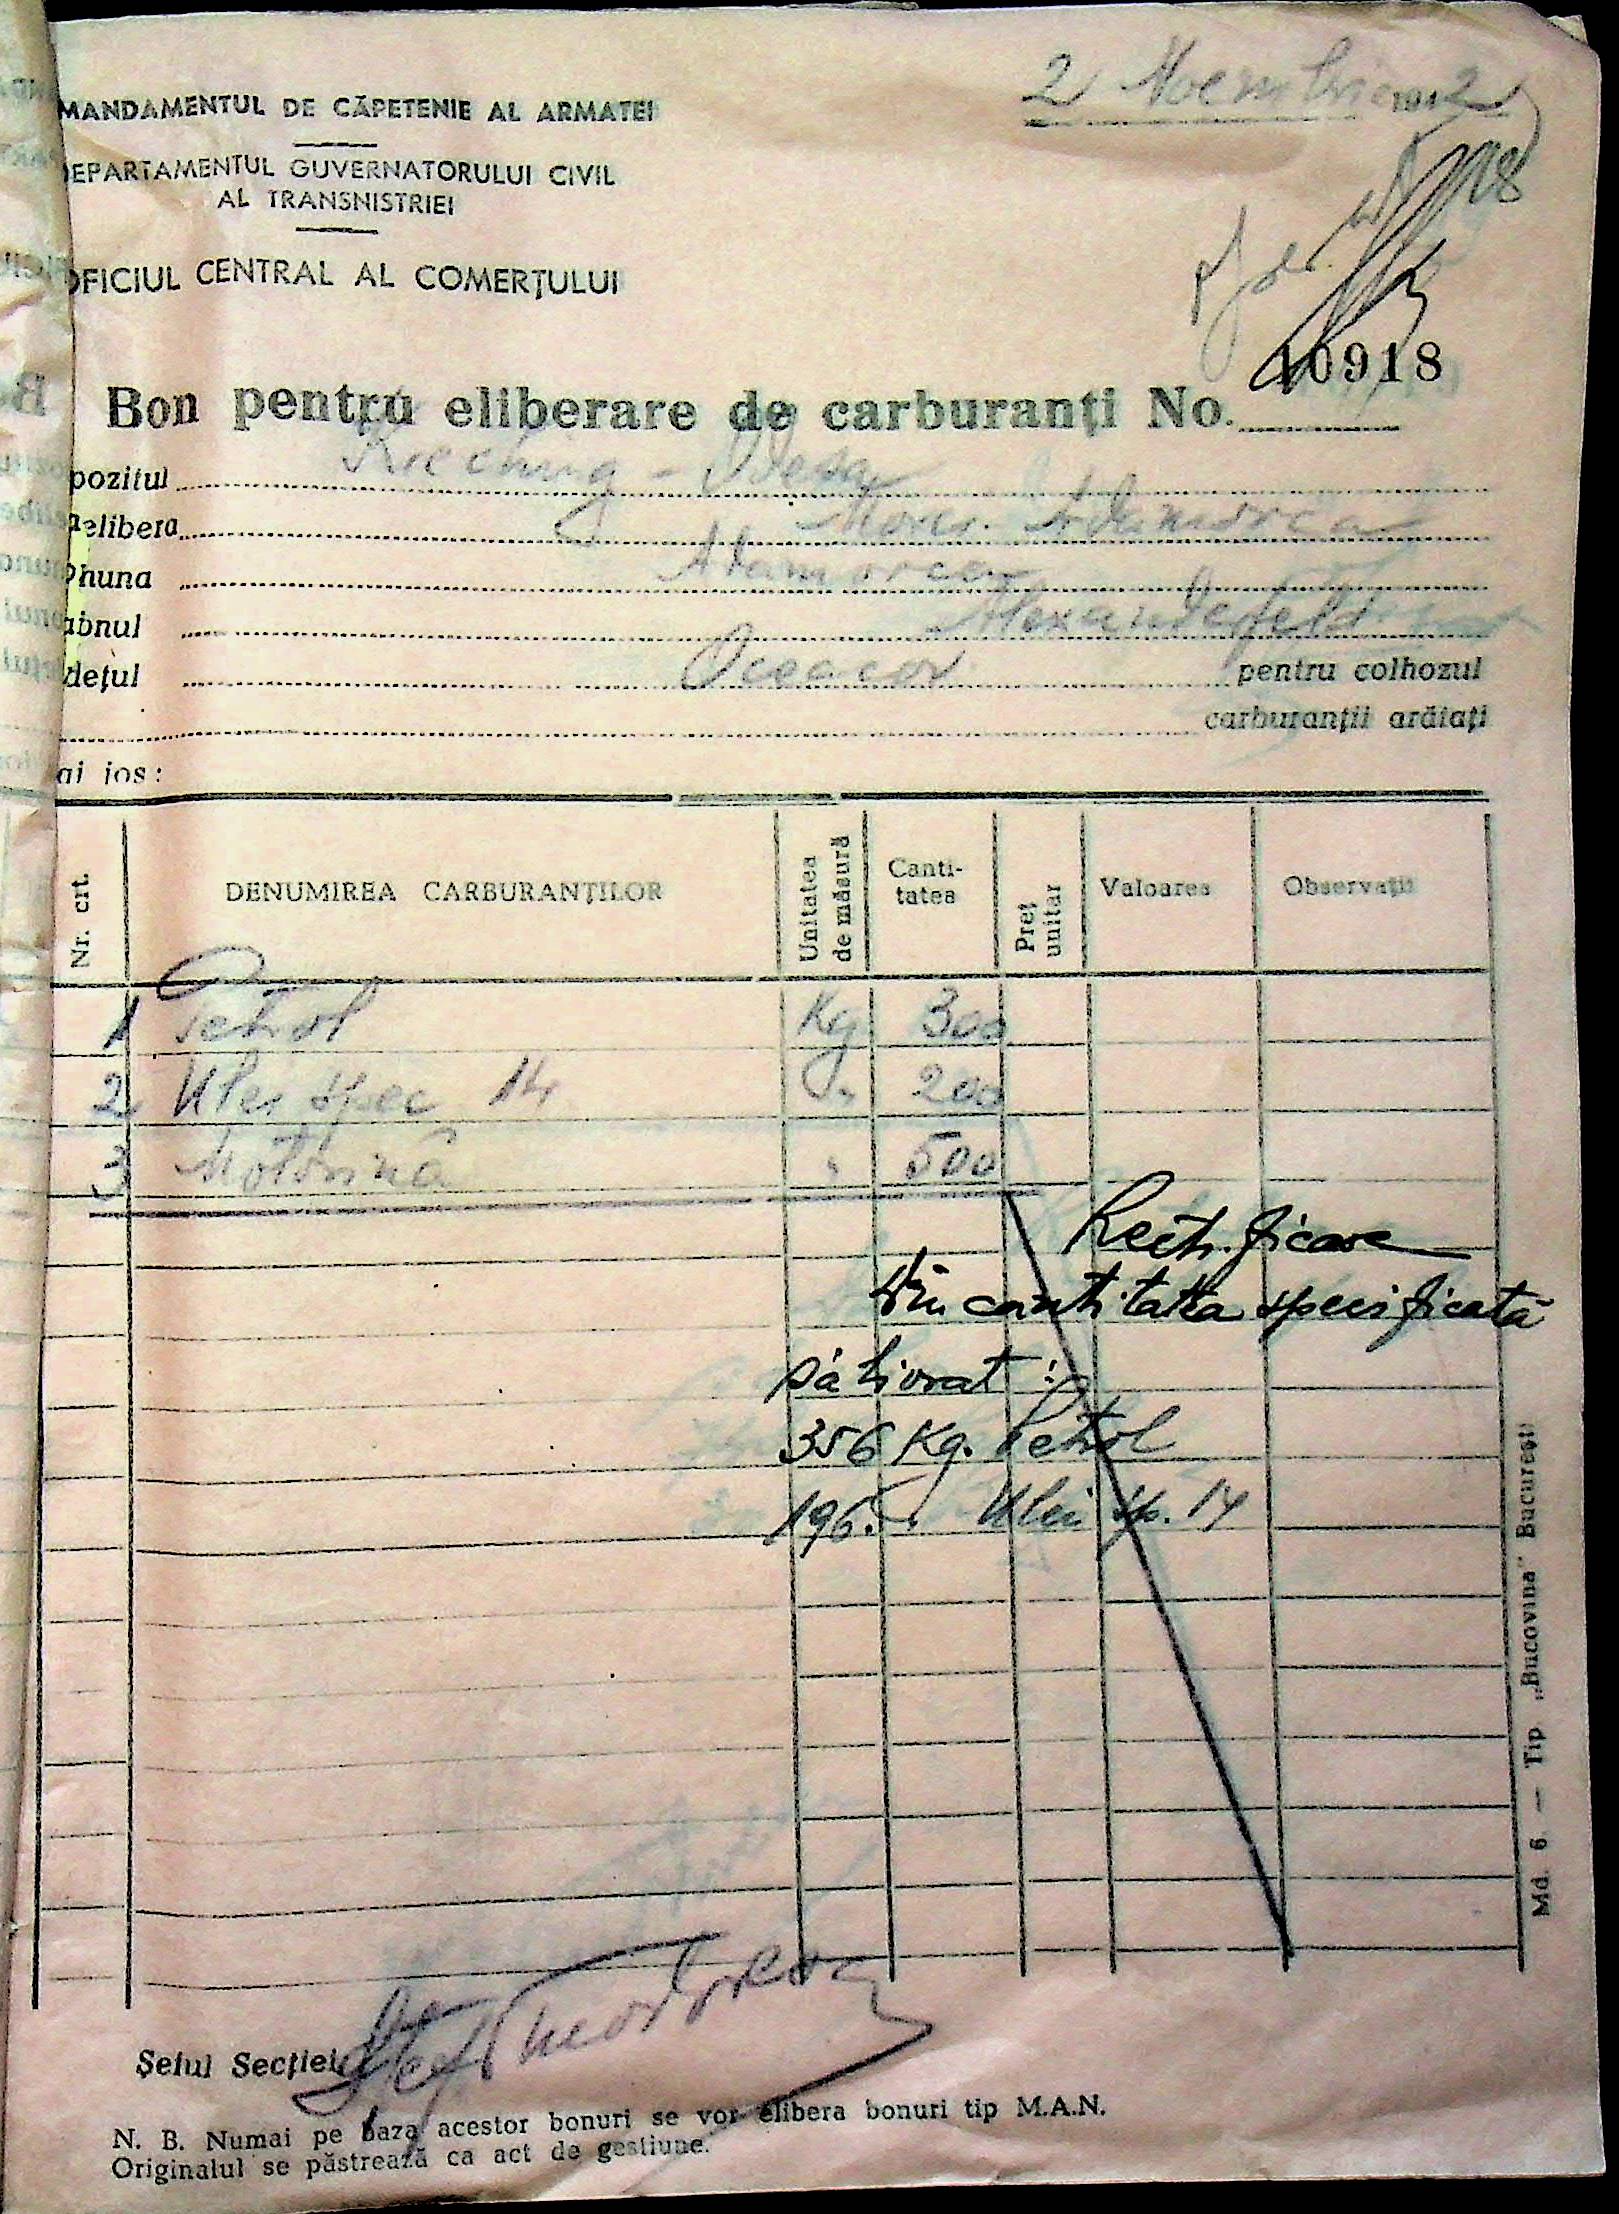 MANDAMENTUL DE CĂPETENIE AL ARMATEI
2 Noembrie 1942
DEPARTAMENTUL GUVERNATORULUI CIVIL
AL TRANSNISTRIEI
OFICIUL CENTRAL AL COMERȚULUI
Bon pentru eliberare de carburanți No. 10918
pozitul - Odesa
elibera
huna Adamovca
abnul Alexanderfeld
dețul Oceacov pentru colhozul
carburanții arătați
ai jos:
Nr. crt. DENUMIREA CARBURANȚILOR Unitatea de măsură Canti-tatea Preț unitar Valoarea Observații
1 Petrol Kg 300
2 Ulei spec 14 " 200
3 Motorină " 500
Rectificare
Din cantitatea specificată
s'a livrat:
356 Kg. Petrol
196 " Ulei sp. 14
Md. 6 — Tip „Bucovina" București
Șeful Secției
N. B. Numai pe baza acestor bonuri se vor elibera bonuri tip M.A.N.
Originalul se păstrează ca act de gestiune.